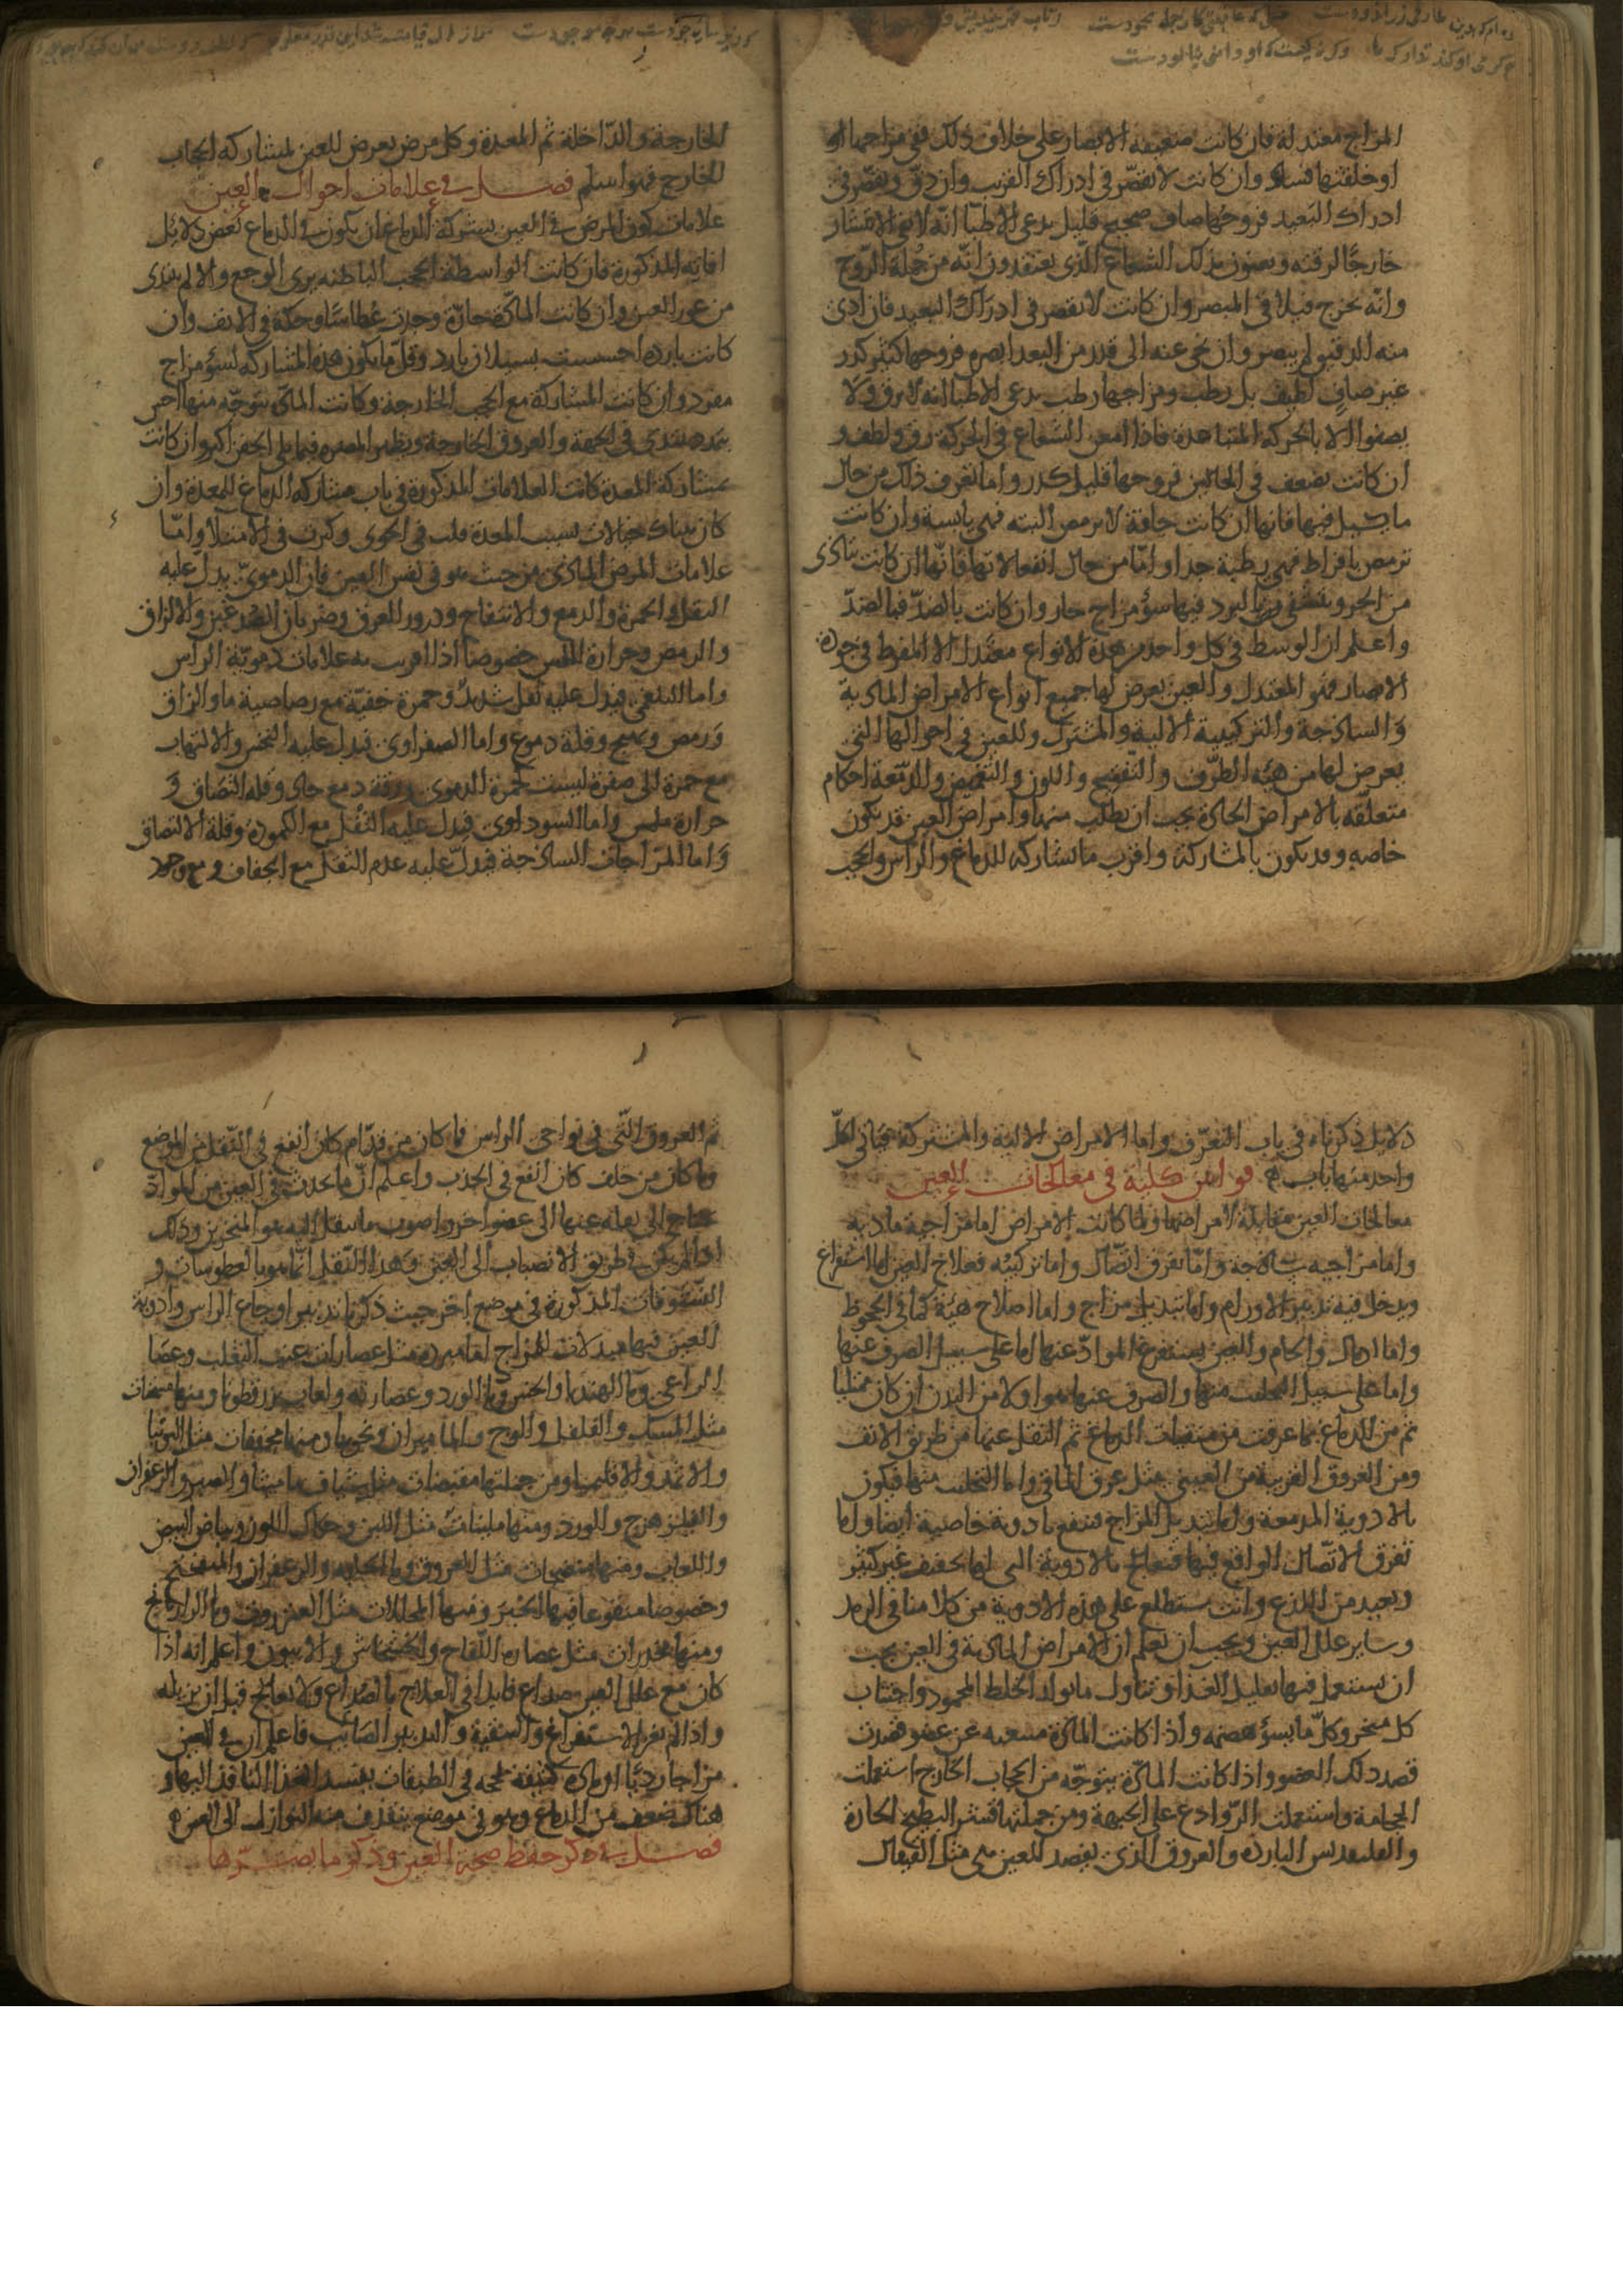 المزاج معتدلة فان كانت ضعيفة الابصار على خلاف ذلك ففي مزاجها
او خلقتها فساد وان كانت لا تقصّر في ادراك القريب وان دقّ وتقصّر في
ادراك البعيد فروحها صاف صحيح قليل يدعى الاطبّا انّه لا يفي للانتشار
خارجًا لرقته ويعنون بذلك الشعاع الّذي يعتقدون انّه من جُملة الرّوح
وانّه يخرج فيلاقي المبصر وان كانت لا تقصر في ادراك البعيد فان ادنى
منه الدقيق لم يبصر وان نحي عنه الى قدر من البعد ابصره فروحها كثير كدر
غير صافٍ لطيف بل رطب ومزاجها رطب يدعى الاطبّا انه لا يرق ولا
يصفوا الا بالحركة المتباعدة فاذا امعن الشعاع في الحركة رق ولطف و
ان كانت تضعف في الحالين فروحها قليل كدر واما تعرف ذلك من حال
ما يسيل فيها فانها ان كانت جافة لا ترمص البته فهي يابسة وان كانت
ترمص بافراط فهي رطبة جدا واما من حال انفعالاتها فانّها ان كانت تتاذى
من الحر وتشفى بالبرد فيها سؤ مزاج حار وان كانت بالضدّ فبالضدّ
واعلم ان الوسط في كل واحد من هذه الانواع معتدل الا المفرط في جودة
الابصار فهو المعتدل والعين يعرض لها جميع انواع الامراض الماديه
والساذجة والتركيبية الالية والمشترك وللعين في احوالها التي
يعرض لها من هيئة الطرف والتّفتيح واللون والتغميض والدّمعة احكام
متعلّقة بالامراض الحادّة يجب ان تطلب منها وامراض العين قد يكون
خاصه وقد يكون بالمشاركة واقرب ما تشاركه للدماغ والراس والحجب
الخارجة والدّاخلة ثم المعدة وكل مرض يعرض للعين لمشاركة الحجاب
الخارج فهو اسلم فصل في علامات احوال العين
علامات كون المرض في العين بشركة الدماغ ان يكون في الدماغ بعض دلائل
افاته المذكورة فان كانت الواسطة الحجب الباطنه يرى الوجع والالم يبتدى
من غور العين وان كانت المادّة حارّة وجدت عُطاسًا وحكّة في الانف وان
كانت باردة احسست بسيلان بارد وقلّ ما يكون هذه المشاركة لسوء مزاج
مفرد وان كانت المشاركة مع الحجب الخارجة وكانت المادّة يتوجّه منها احس
بتمدد يبتدى في الجبهة والعروق الخارجة ويظهر المضرة فيما يلى الجفن اكثر وان كانت
بمشاركة المعدة كانت العلامات المذكورة في باب مشاركة الدماغ للمعدة وان
كان هناك خيالات بسبب المعدة قلت في الخوى وكثرت في الامتلا وامّا
علامات المرض المادّى من حيث هو في نفس العين فان الدموىّ يدل عليه
الثقل والحمرة والدمع والانتفاخ ودرور العرق وضربان الصدغين والالزاق
والرمص وحرارة الملمس خصوصا اذا اقرنت به علامات دمويّة الراس
واما البلغمى فيدل عليه ثقل شديد وحمرة خفيّة مع رصاصية ما والزاق
ورمص وتهيج وقلة دموع واما الصفراوى فيدل عليه النخس والالتهاب
مع حمرة الى صفرة ليست كحمرة الدموى ورقة دمع حاد وقله التصاق و
حرارة ملمس واما السوداوى فيدل عليه الثقل مع الكمودة وقلة الالتصاق
واما المزاجات الساذجة فيدلّ عليه عدم الثقل مع الجفاف ومع وجود
دلايل ذكرناه في باب التعرّف واما الامراض الالية والمشتركة فياتي لكلّ
واحد منها باب قوانين كلية في معالجات العين
معالجات العين مقابلة لامراضها ولما كانت الامراض اما مزاجية ماديه
واما مزاجيه ساذجة وامّا تفرق اتصال واما تركيبه فعلاج العين اما استفراغ
ويدخل فيه تدبير الاورام واما تبديل مزاج واما اصلاح هيئة كما في الجحوظ
واما ادمال والحام والعين يستفرغ الموادّ عنها اما على سبيل الصرف عنها
واما على سبيل التحليب منها والصرف عنها هو اولا من البدن ان كان ممتليا
ثم من الدماغ بما عرفت من منقيات الدماغ ثم النقل عنها من طريق الانف
ومن العروق القريبة من العين مثل عرق الماقي واما التحليب منها فيكون
بالادوية المدمعة واما تبديل المزاج فتقع بادوية خاصية ايضا واما
تفرق الاتصال الواقع فيها فتعالج بالادوية التي لها تجفيف غير كثير
وبعيد من اللذع وانت ستطلع على هذه الادوية من كلامنا في الرمد
وساير علل العين ويجب ان تعلم ان الامراض المادية في العين يجب
ان يستعمل فيها تقليل الغذا وتناول ما يولد الخلط المحمود واجتناب
كل مبخر وكلّ ما يسؤ هضمه واذا كانت المادّة منبعثه عن عضو قصدت
قصد ذلك العضو واذا كانت المادّة يتوجّه من الحجاب الخارج استعملت
الحجامة واستعملت الرّوادع على الجبهة ومن جملتها قشر البطيخ للحارة
والقلقديس للباردة والعروق الذي تفصد للعين هي مثل القيفال
ثم العروق التّى في نواحى الراس فما كان من قدّام كان انفع في النّقل من الموضع
وما كان من خلف كان انفع في الجذب واعلم انّ ما يحدث في العين من الموادّ
محتاج الى نقله عنها الى عضو اخر واصوب ما ينقل اليه هو المنخرين وذلك
اذا لم يكن في طريق الانصباب الى العين وهذا النّقل انّما هو بالعطوسات و
النّشوقات المذكورة في موضع اخر حيث ذكرنا تدبير اوجاع الراس وادوية
العين فيها مبدلات للمزاج اما مبردة مثل عصارات عنب الثعلب وعصا
الراعي وما الهندبا والخس وما الورد وعصارته ولعاب بزر قطونا ومنها مسخنات
مثل المسك والفلفل والوج والماميران ونحوها ومنها مجففات مثل التوتيا
والاثمد والاقليميا ومن جملتها مقبضات مثل شياف ماميثا والصبر والزعفران
والفيلزهرج والورد ومنها ملينات مثل اللبن وحكاك اللوز وبياض البيض
واللعاب ومنها منضجات مثل العروق وما الحلبة والزعفران والميبختج
وخصوصا منقوعا فيها الخبز ومنها المحللات مثل العنزروت وما الرازيانج
ومنها مخدرات مثل عصارة اللّفاح والخشخاش والافيون واعلم انه اذا
كان مع علل العين صداع فابدا في العلاج بالصداع ولا تعالج قبل ان تزيله
واذا لم يغن الاستفراغ والتنقية والتدبير الصايب فاعلم ان في العين
مزاجا رديًا او مادة كثيفة لحجه في الطبقات يفسد الغذا النافذ اليها و
هناك ضعف من الدماغ وهو في موضع يتقذف منه النوازل الى العين
فصل في ذكر حفظ صحة العين وذكر ما يضرّها